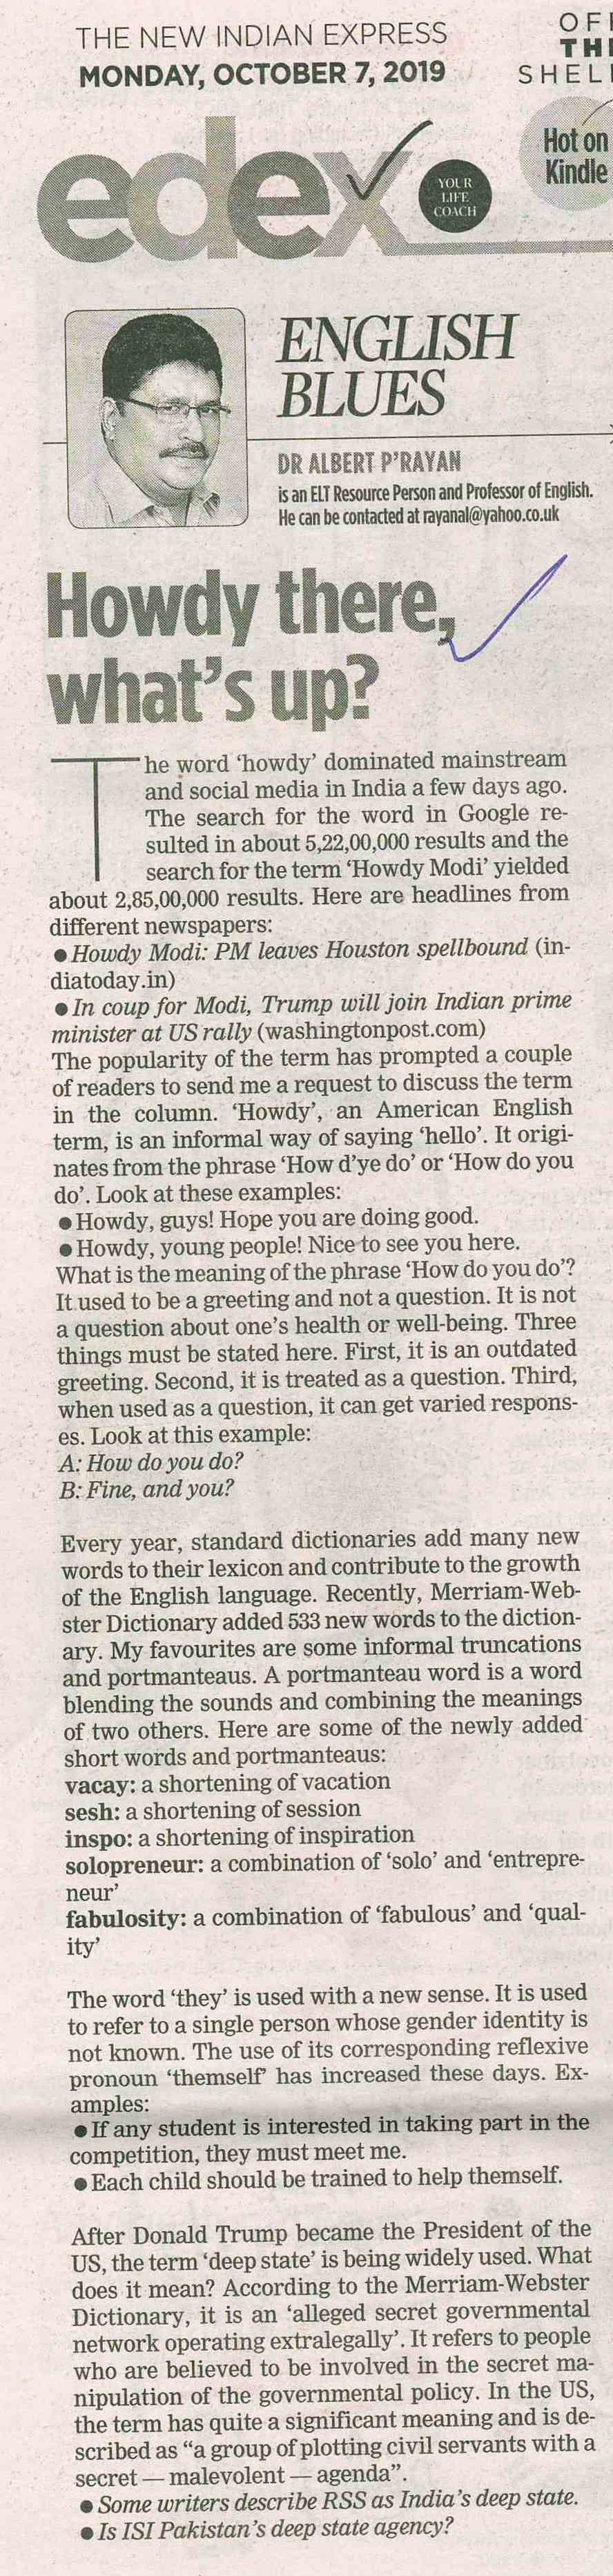 THE NEW INDIAN EXPRESS
MONDAY, OCTOBER 7, 2019
Hot on
Kindle
edex
YOUR
LIFE
COACH
ENGLISH
BLUES
DR ALBERT P'RAYAN
is an ELT Resource Person and Professor of English.
He can be contacted at rayanal@yahoo.co.uk
Howdy there,
what's up?
The word 'howdy' dominated mainstream
and social media in India a few days ago.
The search for the word in Google re-
sulted in about 5,22,00,000 results and the
search for the term 'Howdy Modi' yielded
about 2,85,00,000 results. Here are headlines from
different newspapers:
● Howdy Modi: PM leaves Houston spellbound (in-
diatoday.in)
● In coup for Modi, Trump will join Indian prime
minister at US rally (washingtonpost.com)
The popularity of the term has prompted a couple
of readers to send me a request to discuss the term
in the column. 'Howdy', an American English
term, is an informal way of saying 'hello'. It origi-
nates from the phrase 'How d'ye do' or 'How do you
do'. Look at these examples:
● Howdy, guys! Hope you are doing good.
● Howdy, young people! Nice to see you here.
What is the meaning of the phrase 'How do you do'?
It used to be a greeting and not a question. It is not
a question about one's health or well-being. Three
things must be stated here. First, it is an outdated
greeting. Second, it is treated as a question. Third,
when used as a question, it can get varied respons-
es. Look at this example:
A: How do you do?
B: Fine, and you?
Every year, standard dictionaries add many new
words to their lexicon and contribute to the growth
of the English language. Recently, Merriam-Web-
ster Dictionary added 533 new words to the diction-
ary. My favourites are some informal truncations
and portmanteaus. A portmanteau word is a word
blending the sounds and combining the meanings
of two others. Here are some of the newly added
short words and portmanteaus:
vacay: a shortening of vacation
sesh: a shortening of session
inspo: a shortening of inspiration
solopreneur: a combination of 'solo' and 'entrepre-
neur'
fabulosity: a combination of 'fabulous' and 'qual-
ity'
The word 'they' is used with a new sense. It is used
to refer to a single person whose gender identity is
not known. The use of its corresponding reflexive
pronoun 'themself' has increased these days. Ex-
amples:
● If any student is interested in taking part in the
competition, they must meet me.
● Each child should be trained to help themself.
After Donald Trump became the President of the
US, the term 'deep state' is being widely used. What
does it mean? According to the Merriam-Webster
Dictionary, it is an 'alleged secret governmental
network operating extralegally'. It refers to people
who are believed to be involved in the secret ma-
nipulation of the governmental policy. In the US,
the term has quite a significant meaning and is de-
scribed as "a group of plotting civil servants with a
secret — malevolent — agenda".
● Some writers describe RSS as India's deep state.
● Is ISI Pakistan's deep state agency?